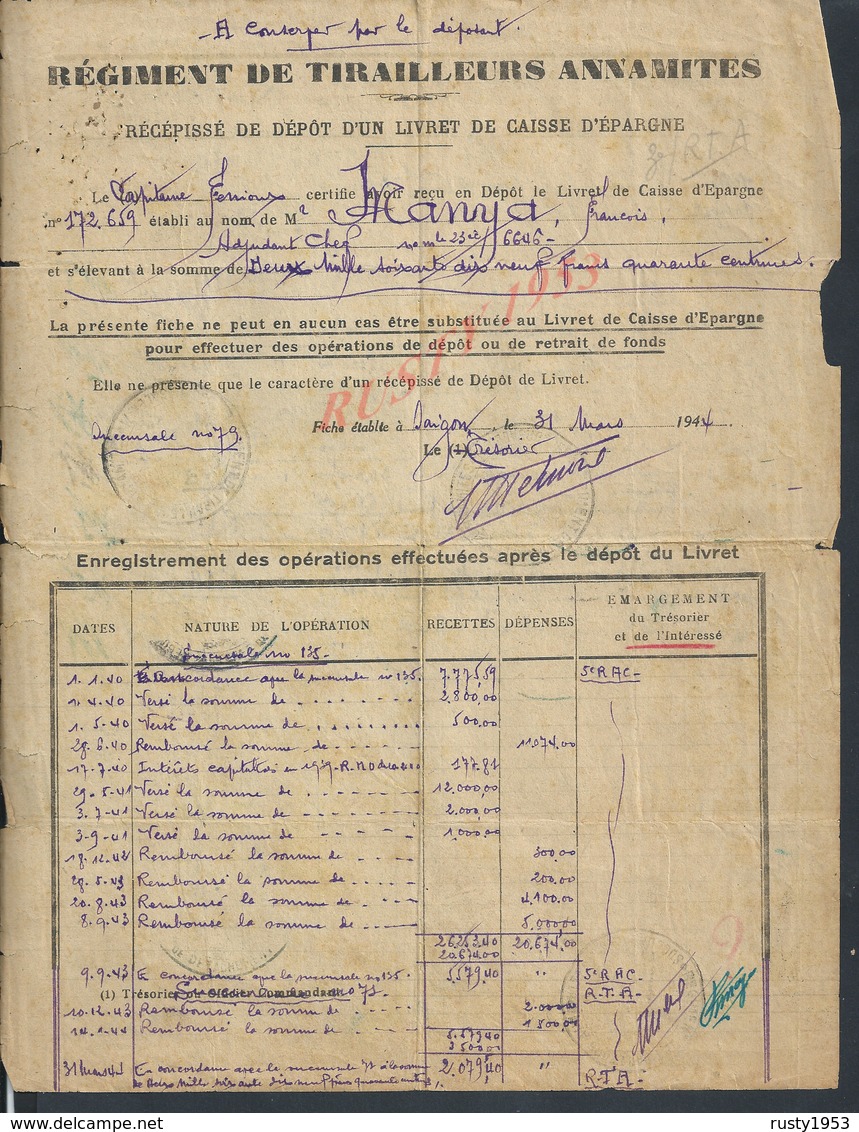 - A conserver par le déposant.
RÉGIMENT DE TIRAILLEURS ANNAMITES
RÉCÉPISSÉ DE DÉPÔT D'UN LIVRET DE CAISSE D'ÉPARGNE
R.T.A
Le Capitaine certifie avoir reçu en Dépôt le Livret de Caisse d'Epargne
n° 172.659 établi au nom de Mr Manya, Francois,
Adjudant Chef nom le 23ec 6646-
et s'élevant à la somme de Deux Mille soixante dix neuf francs quarante centimes.
La présente fiche ne peut en aucun cas être substituée au Livret de Caisse d'Epargne
pour effectuer des opérations de dépôt ou de retrait de fonds
Elle ne présente que le caractère d'un récépissé de Dépôt de Livret.
RUSTY 1953
Fiche établte à Saigon, le 31 Mars 1944.
Succursale n° 79.
Le (1) Trésorier
Enregistrement des opérations effectuées après le dépôt du Livret
DATES NATURE DE L'OPÉRATION RECETTES DÉPENSES EMARGEMENT
du Trésorier
et de l'Intéressé
Succursale no 135-
1.1.40 En concordance avec la succursale no 135. 7.775,59 5e RAC-
1.4.40 Versé la somme de 2.800,00
1.5.40 Versé la somme de 500,00
28.6.40 Remboursé la somme de 11074.00
17.7.40 Intérêts capitalisés en 1939 177.81
29.5.41 Versé la somme de 12.000.00
3.7.41 Versé la somme de 2.000,00
3.9.41 Versé la somme de 1.000,00
18.12.42 Remboursé la somme de 300,00
28.5.43 Remboursé la somme de 200.00
20.8.43 Remboursé la somme de 4.100.00
8.9.43 Remboursé la somme de 5.000,00
26.253.40 20.674.00
20.674.00
9.9.43 En concordance avec la succursale no 135. 5.579.40 " 5e RAC-
(1) Trésorier ou Officier Commandant
Succursale no 71 R.T.A-
10.12.43 Remboursé la somme de 2.000,00
Remboursé la somme de 1500,00
5.579.40
3500.00
31 Mars 44 En concordance avec la succursale 71 à la somme 2.079,40 "
de Deux Mille soixante dix neuf francs quarante centimes R.T.A-
rusty1953